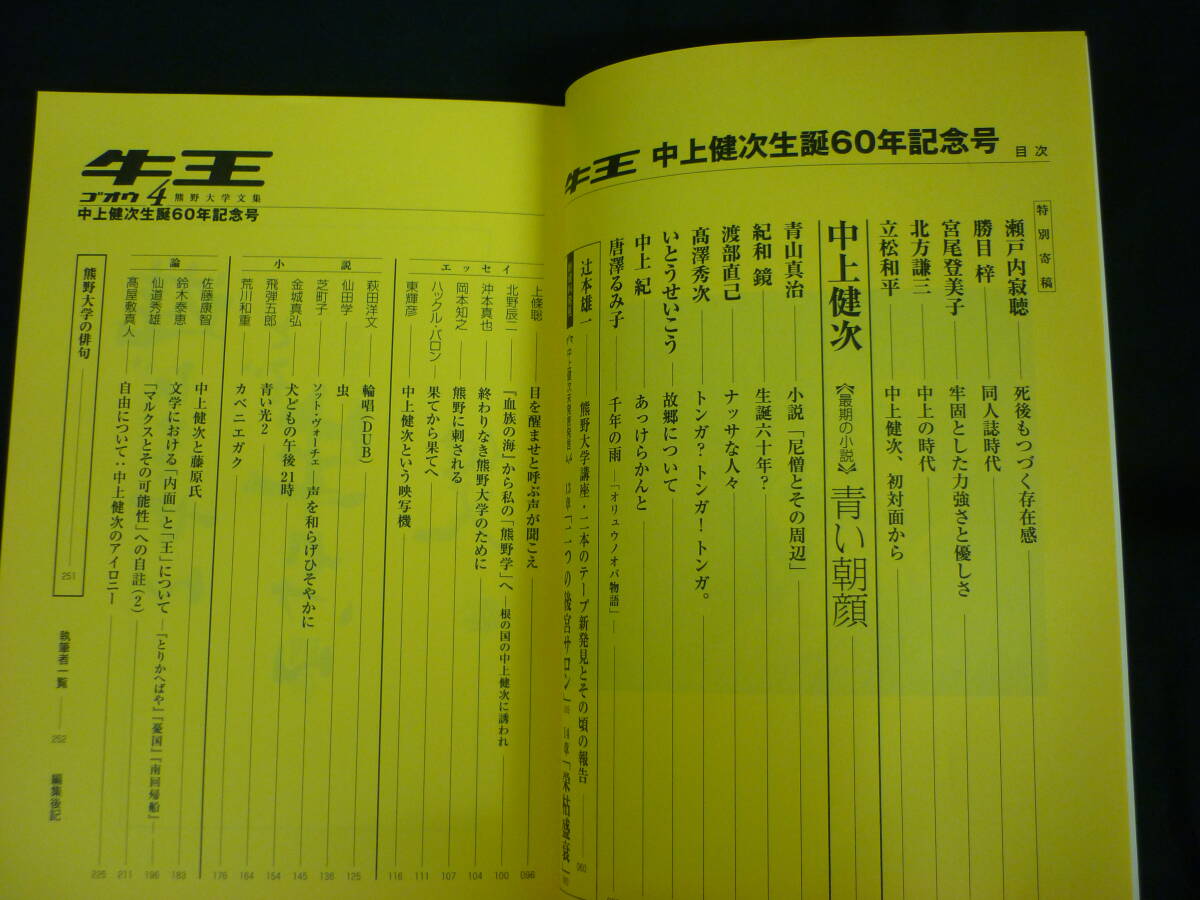 牛王 中上健次生誕60年記念号 目次
特別寄稿
瀬戸内寂聴 死後もつづく存在感
勝目 梓 同人誌時代
宮尾登美子 牢固とした力強さと優しさ
北方謙三 中上の時代
立松和平 中上健次、初対面から
中上健次 《最期の小説》 青い朝顔
青山真治 小説「尼僧とその周辺」
紀和 鏡 生誕六十年?
渡部直己 ナッサな人々
髙澤秀次 トンガ?トンガ!トンガ。
いとうせいこう 故郷について
中上 紀 あっけらかんと
唐澤るみ子 千年の雨 「オリュウノオバ物語」
辻本雄一 熊野大学講座・二本のテープ新発見とその頃の報告 060
13章「二つの後宮サロン」 14章「栄枯盛衰」
牛王
ゴオウ 4 熊野大学文集
中上健次生誕60年記念号
エッセイ
上條聡 目を醒ませと呼ぶ声が聞こえ 096
北野辰二 『血族の海』から私の「熊野学」へ 根の国の中上健次に誘われ 100
沖本真也 終わりなき熊野大学のために 104
岡本知之 熊野に刺される 107
ハックル・バロン 果てから果てへ 111
東輝彦 中上健次という映写機 116
小説
萩田洋文 輪唱(DUB) 125
仙田学 虫 136
芝町子 ソット・ヴォーチェ 声を和らげひそやかに 145
金城真弘 犬どもの午後21時 154
飛弾五郎 青い光2 164
荒川和重 カベニエガク 176
論
佐藤康智 中上健次と藤原氏 183
鈴木泰恵 文学における「内面」と「王」について 『とりかへばや』『憂国』『南回帰船』 196
仙道秀雄 「マルクスとその可能性」への自註(2) 211
髙屋敷真人 自由について:中上健次のアイロニー 225
熊野大学の俳句 251
執筆者一覧 252 編集後記